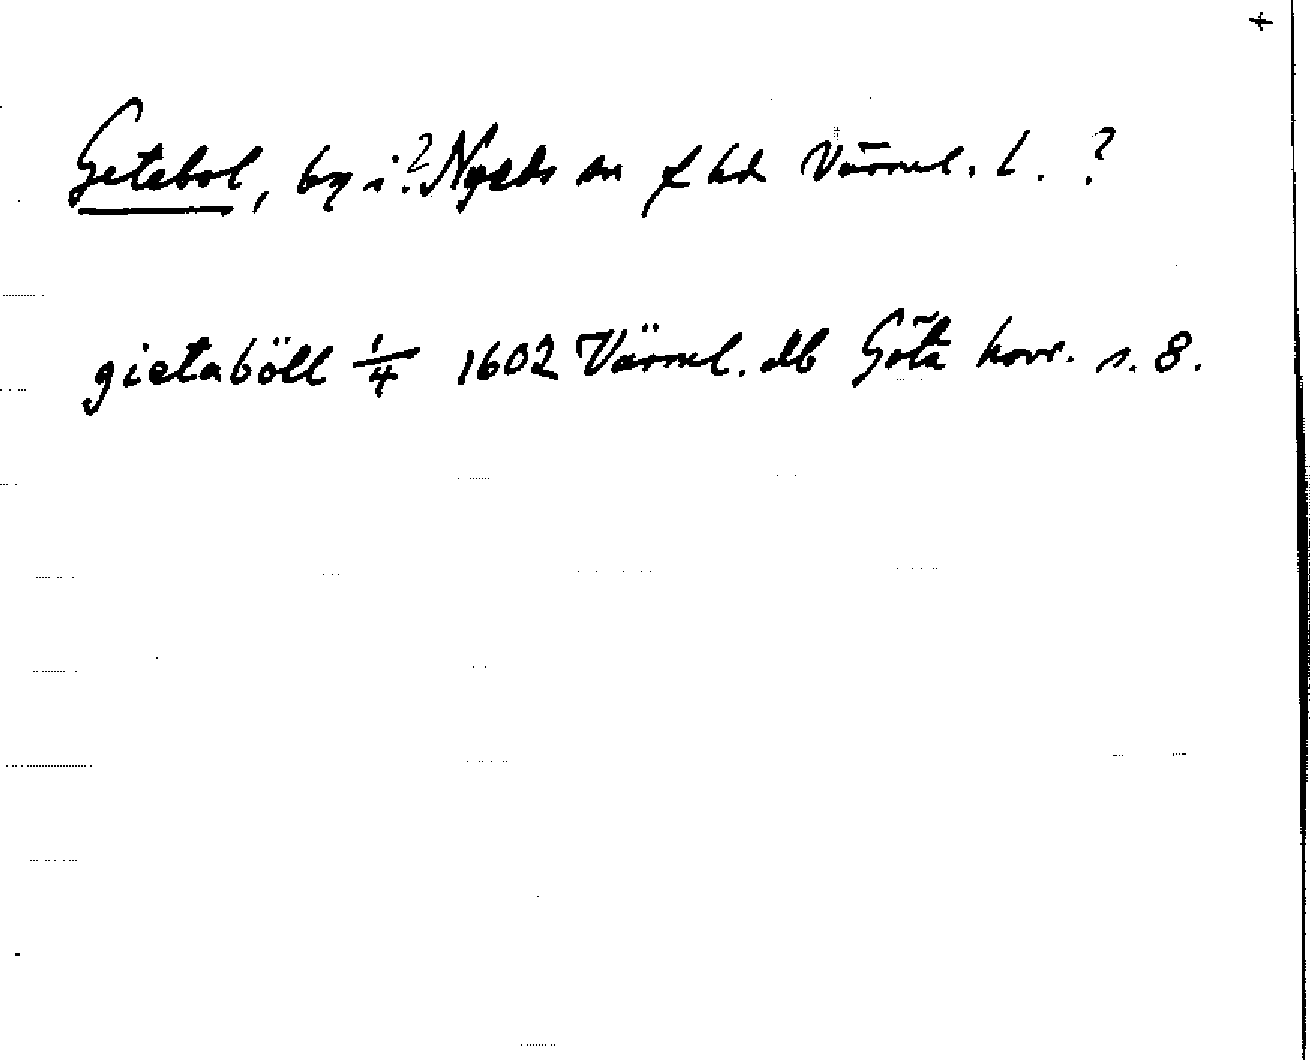 +
Getebol, by i? Nyeds sn f hd Värml. l. ?
gietaböll 1/4 1602 Värml. db Göta hovr. s. 8.